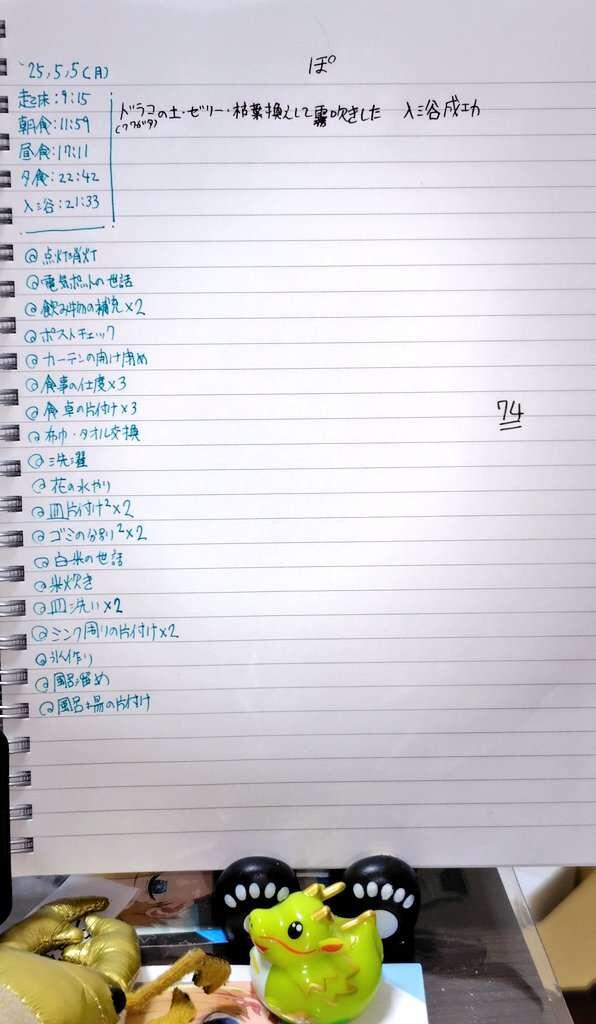 '25,5,5(月)
ぽ
起床:9:15
朝食:11:59
昼食:17:11
夕食:22:42
入浴:21:33
ドラコの土・ゼリー・枯葉換えして霧吹きした 入浴成功
(クワガタ)
@点灯消灯
@電気ポットの世話
@飲み物の補充×2
@ポストチェック
@カーテンの開け閉め
@食事の仕度×3
@食卓の片付け×3
@布巾・タオル交換
@洗濯
@花の水やり
@皿片付け²×2
@ゴミの分別²×2
@白米の世話
@米炊き
@皿洗い×2
@シンク周りの片付け×2
@氷作り
@風呂溜め
@風呂場の片付け
74